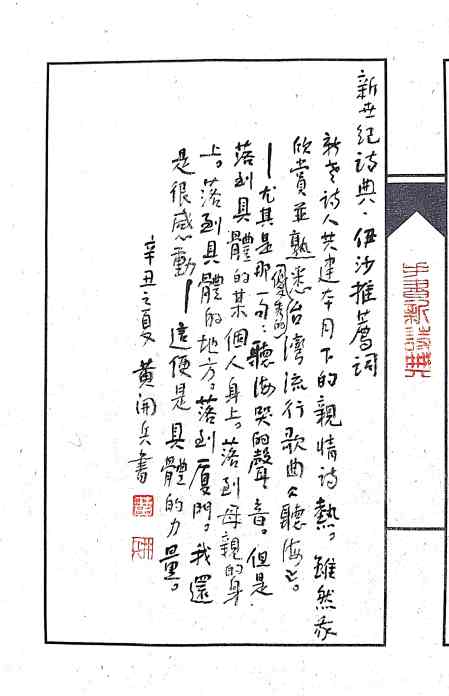 手書新詩典
新世紀詩典·伊沙推薦詞
新老詩人共建本月下的親情詩熱。雖然我
欣賞並熟悉台灣流行歌曲《聽海》。
優秀的
——尤其是那一句：聽海哭的聲音。但是
落到具體的某個人身上。落到母親的身
上。落到具體的地方。落到厦門。我還
是很感動——這便是具體的力量。
辛丑之夏 黄開兵書
黄